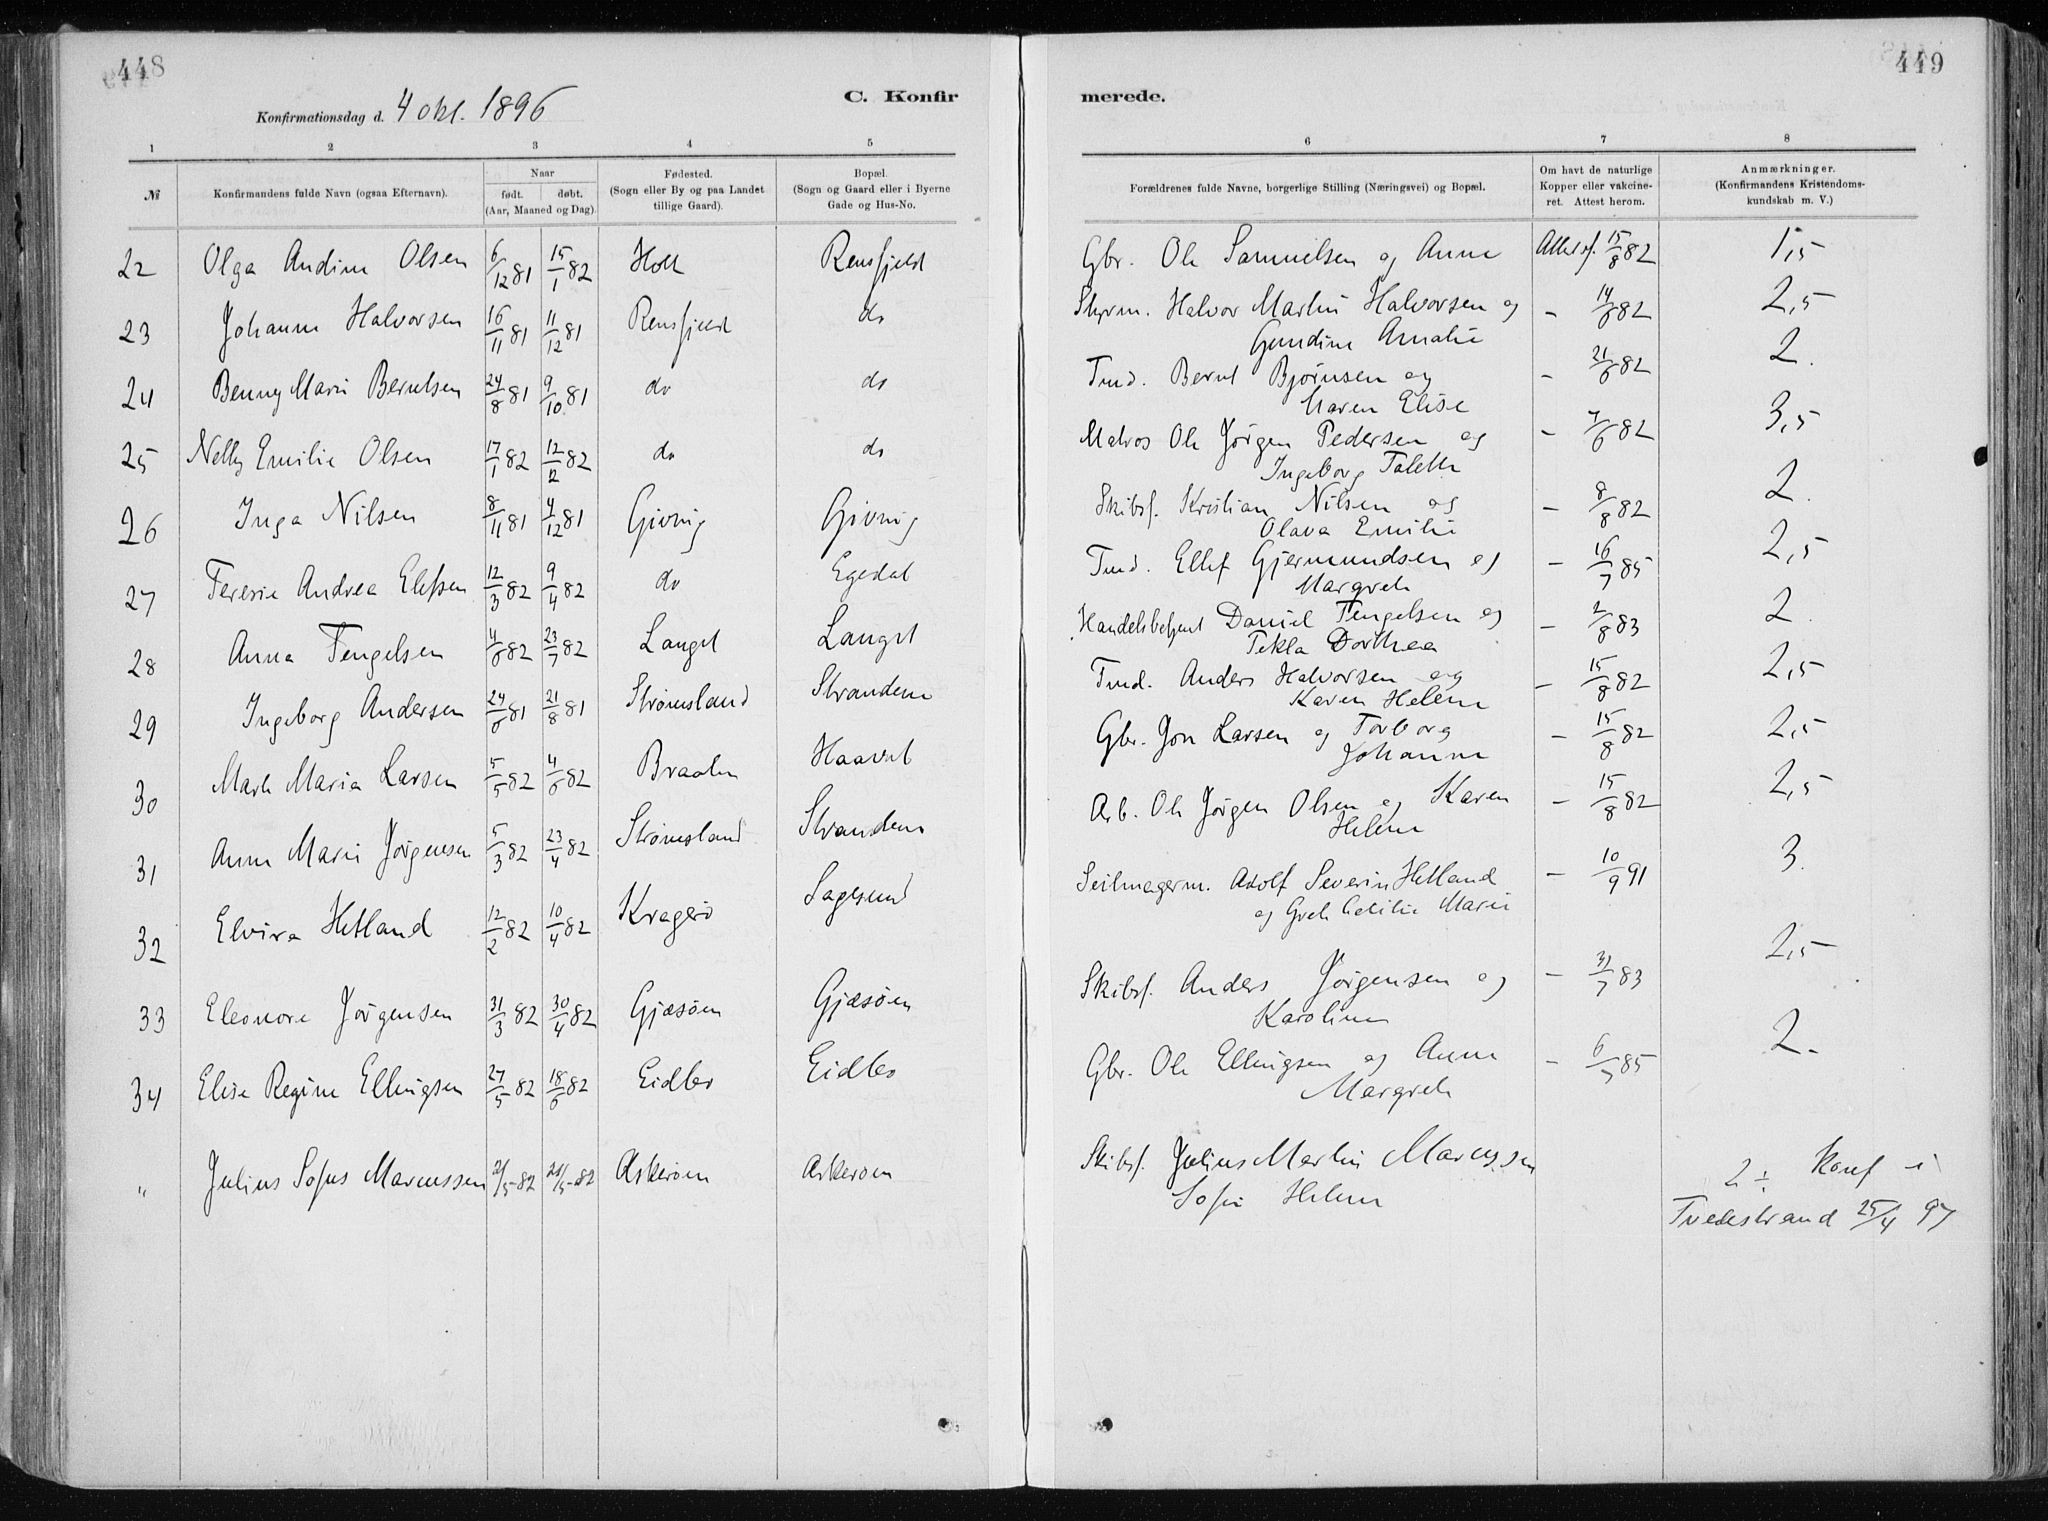 448
449
C. Konfir merede.
Konfirmationsdag d. 4 okt. 1896
1 2 3 4 5 6 7 8
№
Konfirmandens fulde Navn (ogsaa Efternavn).
Naar
født. døbt.
(Aar, Maaned og Dag).
Fødested.
(Sogn eller By og paa Landet
tillige Gaard).
Bopæl.
(Sogn og Gaard eller i Byerne
Gade og Hus-No.
Forældrenes fulde Navne, borgerlige Stilling (Næringsvei) og Bopæl.
Om havt de naturlige
Kopper eller vakcine-
ret. Attest herom.
Anmærkninger.
(Konfirmandens Kristendoms-
kundskab m. V.)
22 Olga Andine Olsen 6/12 81 15/1 82 Holt Rensfjeld Gbr. Ole Samuelsen og Anne 15/8 82 1,5
23 Johanne Halvorsen 16/11 81 11/12 81 Rensfjeld do Styrm. Halvor Martin Halvorsen og - 14/6 82 2,5
Gundine Amalie
24 Benny Marie Berntsen 24/8 81 9/10 81 do do Tmd. Bernt Bjørnsen og - 21/6 82 2.
Maren Elise
25 Nelly Emilie Olsen 17/1 82 12/2 82 do do Matros Ole Jørgen Pedersen og - 7/6 82 3,5
Ingeborg Talette
26 Inga Nilsen 8/11 81 4/12 81 Givnig Givnig Skibsf. Kristian Nilsen og - 8/8 82 2.
Olava Emilie
27 Andrea Elefsen 12/3 82 9/4 82 do Egedal Tmd. Ellef Gjermundsen og - 16/7 85 2,5
Margrete
28 Anna Tengelsen 4/6 82 23/7 82 Langst Langst Handelsbetjent Daniel Tengelsen og - 2/8 83 2.
Tekla Dorthea
29 Ingeborg Andersen 24/6 81 21/8 81 Strømsland Strandene Tmd. Anders Halvorsen og - 15/8 82 2,5
Karen Helene
30 Marte Maria Larsen 5/5 82 4/6 82 Braaten Haavet Gbr. Jon Larsen og Torborg - 15/8 82 2,5
Johanne
31 Anne Marie Jørgensen 5/3 82 23/4 82 Strømsland Strandene Arb. Ole Jørgen Olsen og Karen - 15/8 82 2,5
Helene
32 Elvira Hetland 12/2 82 10/4 82 Kragerø Sagesund Seilmagerm. Adolf Severin Hetland - 10/9 91 3.
og Grete Cecilie Marie
33 Eleonore Jørgensen 31/3 82 30/4 82 Gjæsøen Gjæsøen Skibsf. Anders Jørgensen og - 31/7 83 2,5
Karoline
34 Elise Regine Ellingsen 27/5 82 18/6 82 Eidbo Eidbo Gbr. Ole Ellingsen og Anne - 6/7 85 2.
Margrete
" Julius Sofus Marcussen 21/5-82 Askerøen Askerøen Skibsf. Julius Martin Marcussen 2 ÷ Konf i
Sofie Helene Tvedestrand 25/4 97